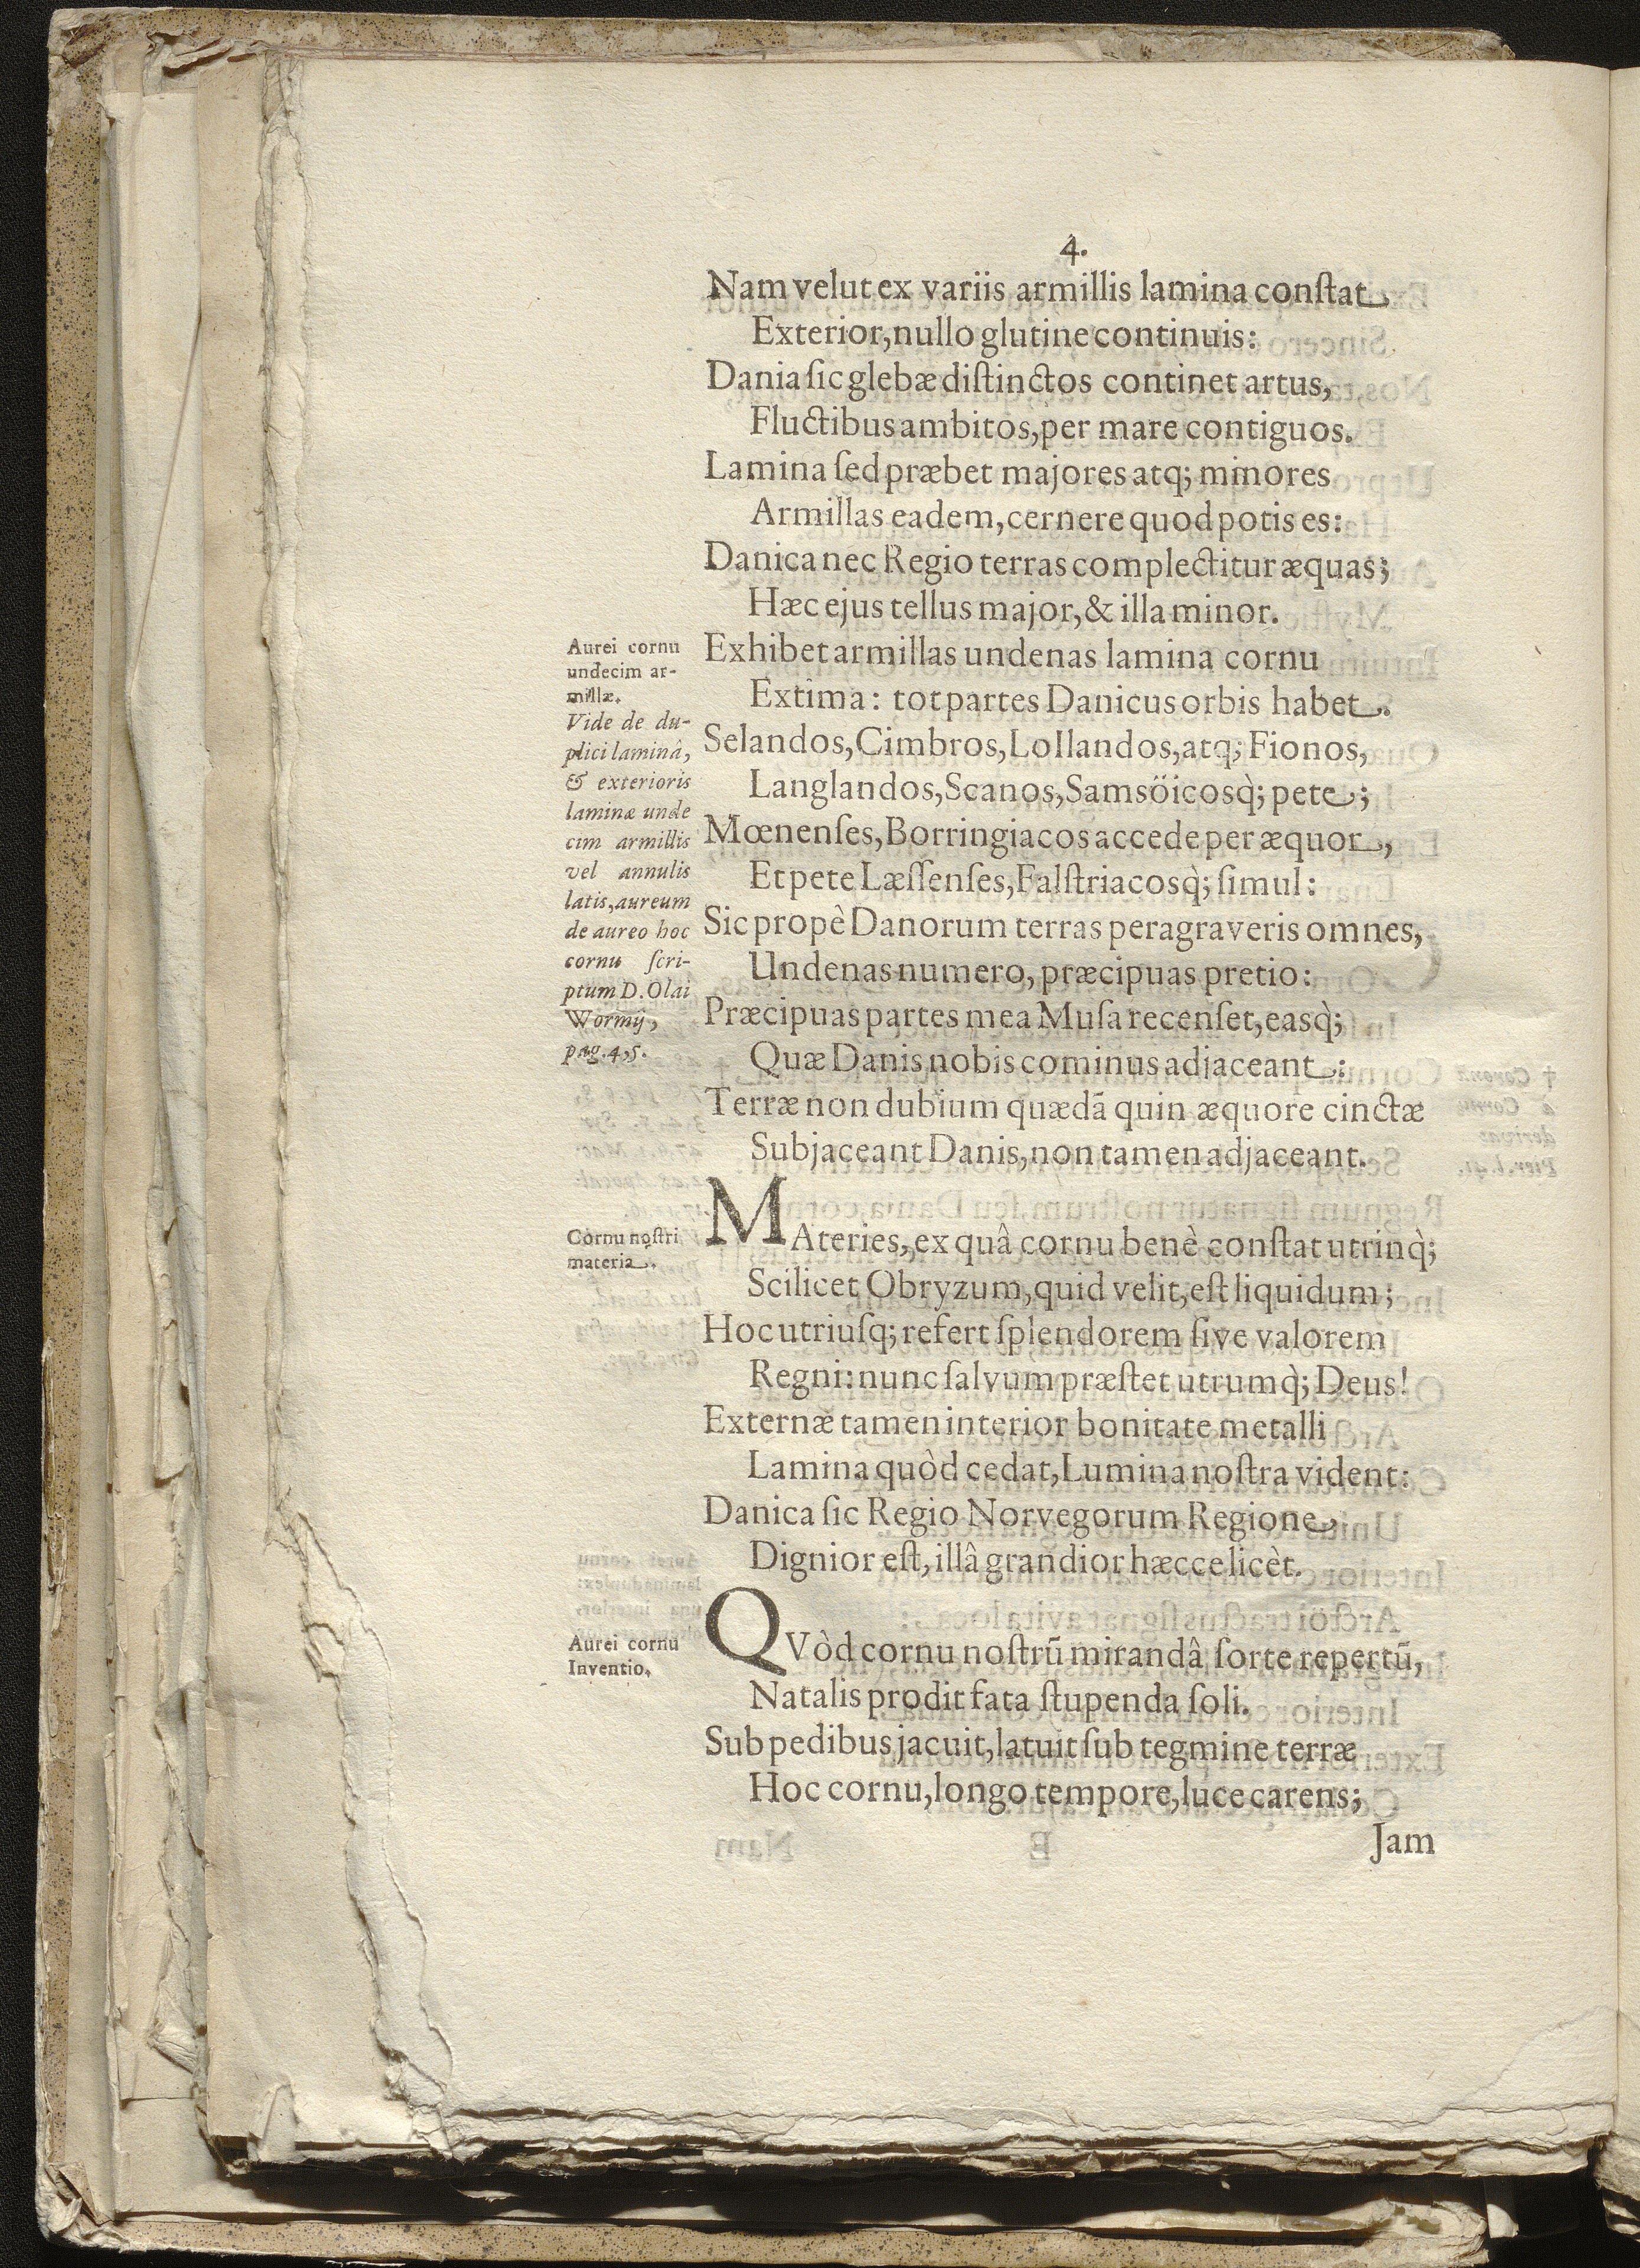 4.
Nam velut ex variis armillis lamina conſtat
Exterior, nullo glutine continuis:
Dania ſic glebæ diſtinctos continet artus,
Fluctibus ambitos, per mare contiguos.
Lamina ſed præbet majores atq; minores
Armillas eadem, cernere quod potis es:
Danica nec Regio terras complectitur æquas;
Hæc ejus tellus major, & illa minor.
Aurei cornu
undecim ar-
millæ.
Vide de du-
plici laminâ,
& exterioris
laminæ unde
cim armillis
vel annulis
latis, aureum
de aureo hoc
cornu ſcri-
ptum D. Olai
Wormij,
pag. 4, 5.
Exhibet armillas undenas lamina cornu
Extima: tot partes Danicus orbis habet.
Selandos, Cimbros, Lollandos, atq; Fionos,
Langlandos, Scanos, Samsöicosq̀; pete;
Mœnenſes, Borringiacos accede per æquor,
Et pete Læſſenſes, Falſtriacosq̀; ſimul:
Sic propè Danorum terras peragraveris omnes,
Undenas numero, præcipuas pretio:
Præcipuas partes mea Muſa recenſet, easq̀;
Quæ Danis nobis cominus adjaceant:
Terræ non dubium quædā quin æquore cinctæ
Subjaceant Danis, non tamen adjaceant.
Cornu noſtri
materia.
MAteries, ex quâ cornu benè conſtat utrinq̀;
Scilicet Obryzum, quid velit, eſt liquidum;
Hoc utriuſq; refert ſplendorem ſive valorem
Regni: nunc ſalvum præſtet utrumq̀; Deus!
Externæ tamen interior bonitate metalli
Lamina quòd cedat, Lumina noſtra vident:
Danica ſic Regio Norvegorum Regione
Dignior eſt, illâ grandior hæcce licèt.
Aurei cornu
Inventio.
QVòd cornu noſtrū mirandâ ſorte repertū,
Natalis prodit fata ſtupenda ſoli.
Sub pedibus jacuit, latuit ſub tegmine terræ
Hoc cornu, longo tempore, luce carens;
Jam